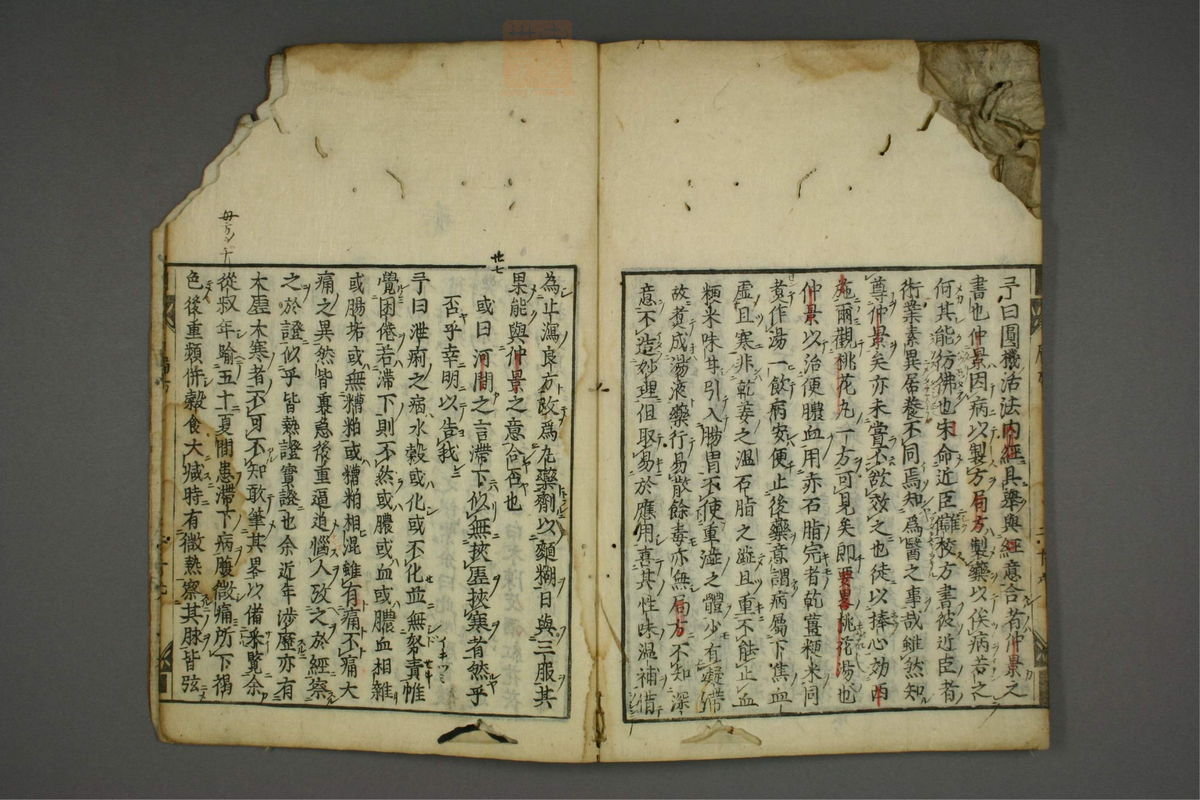 予曰圓機活法內經具舉與經意合者仲景之
書也仲景因病以製方局方製藥以俟病若之
何其能彷彿也宋命近臣讎校方書彼近臣者
術業素異居養不同焉知為醫之事哉雖然知
尊仲景矣亦未嘗不欲效之也徒以捧心効西
施爾觀桃花丸一方可見矣即要畧桃花湯也
仲景以治便膿血用赤石脂完者乾薑粳米同
煮作湯一飲病安便止後藥意謂病屬下焦血
虛且寒非乾姜之温石脂之澁且重不能止血
粳米味甘引入腸胃不使重澁之體少有凝滯
故煮成湯液藥行易散餘毒亦無局方不知深
意不造妙理但取易於應用喜其性味温補借
為止瀉良方改為丸藥劑以麵糊日與三服其
果能與仲景之意合否也
或曰河間之言滯下似無挾虛挾寒者然乎
否乎幸明以告我
予曰泄痢之病水穀或化或不化並無努責惟
覺困倦若滯下則不然或膿或血或膿血相雜
或腸垢或無糟粕或糟粕相混雖有痛不痛大
痛之異然皆裏急後重逼迫惱人攷之於經察
之於證似乎皆熱證實證也余近年涉歷亦有
大虛大寒者不可不知敢筆其畧以備采覽余
從叔年踰五十夏間患滯下病腹微痛所下褐
色後重頻併穀食大減時有微熱察其脉皆弦
卅七